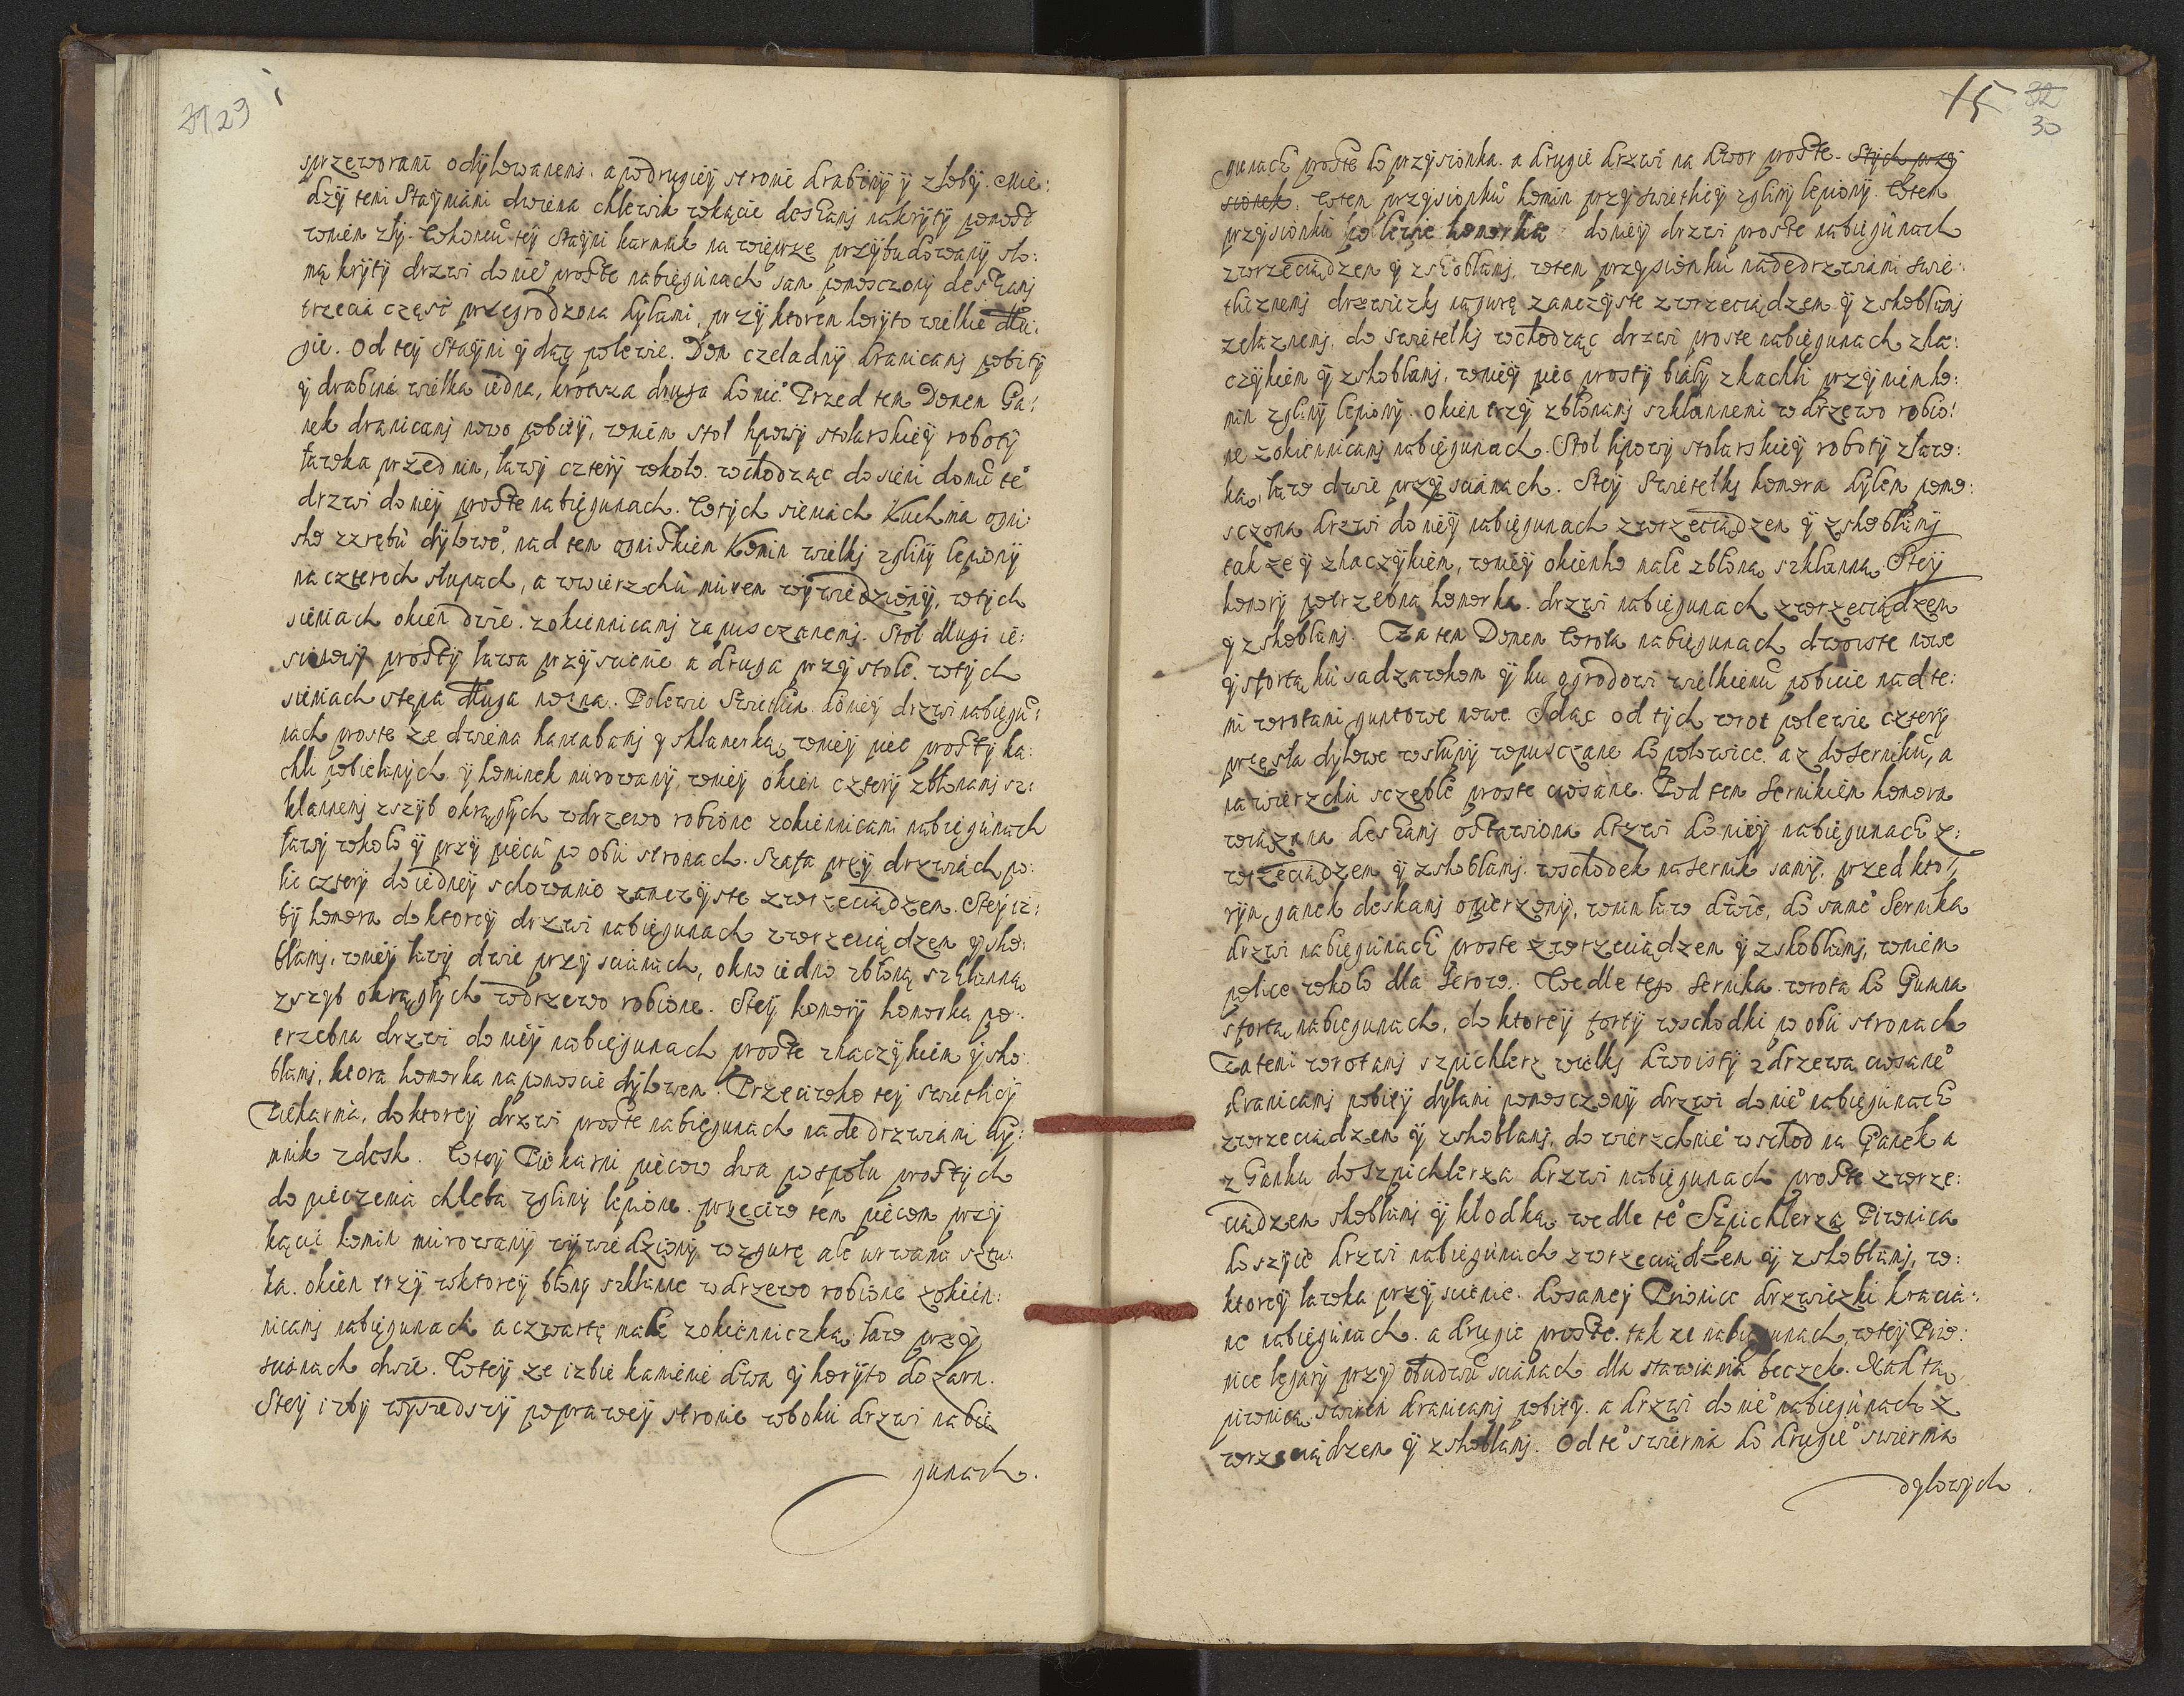 29
sprzeworami odylowanemi. a podrugieÿ stronie drabinÿ ÿ złobÿ. Mie:
dzÿ temi Staÿniami dwiema chlewik wkącie deskami nakrÿtÿ pomost
wniem złÿ. Wkoncu teÿ Staÿni karmnik na wieprze przÿbudowanÿ sło:
mą krÿtÿ drzwi do nie° proste nabiegunach sam pomosczonÿ deskami
trzecia częsc przegrodzona dylami, przÿ ktorem korÿto wielkie dłu:
gie. Od teÿ Staÿni ÿdąc polewie. Dom czeladnÿ dranicami pobitÿ
ÿ drabina wielka iedna, krotsza druga do nie°. Przed tem Domem Ga:
nek dranicami nowo pobitÿ, wniem stoł lipowÿ stolarskieÿ robotÿ
ławka przed nim, ławÿ czterÿ wkoło. wchodząc do sieni domu te°
drzwi do nieÿ proste nabiegunach. Wtÿch sieniach Kuchnia ogni:
sko zzrębu dÿlowe°, nad tem ogniskiem Komin wielki zglinÿ lepionÿ
na czterech słupach, a wwierzchu murem wÿwiedzionÿ, wtÿch
sieniach okien dwie. zokiennicami zapusczanemi. Stoł długi ie:
sionowÿ prostÿ ława przÿ scienie a druga przÿ stole. wtÿch
sieniach stępa długa nozna. Polewie Swietlica do nieÿ drzwi nabiegu:
nach proste ze dwiema hantabami ÿ sklamerką, wnieÿ piec prostÿ ka:
chli pobielanÿch ÿ kominek murowanÿ, wnieÿ okien czterÿ zbłonami sz:
klannemi zszÿb okrągłÿch wdrzewo robione zokiennicami nabiegunach
ławÿ wkoło ÿ przÿ piecu po obu stronach. Szafa przÿ drzwiach po:
lic czterÿ do iedneÿ schowanie zamczÿste zwrzeciądzem. Steÿ iz:
bÿ komora do ktoreÿ drzwi nabiegunach zwrzeciądzem ÿ sko:
blami, wnieÿ ławÿ dwie przÿ scianach, okno iedno zbłoną szklanną
zszÿb okrągłÿch wdrzewo robione. Steÿ komorÿ komorka po:
trzebna drzwi do nieÿ nabiegunach proste zhaczÿkiem ÿ sko:
blami, ktora komorka na pomoscie dÿlowem. Przeciwko teÿ swietlicÿ
Piekarnia, do ktoreÿ drzwi proste nabiegunach nade drzwiami dÿ:
mnik zdesk. Wteÿ Piekarni piecow dwa pospołu prostÿch
do pieczenia chleba zglinÿ lepione. przeciw tem piecom przÿ
kącie komin murowanÿ wÿwiedzionÿ wzgurę ale urwana sztu:
ka. okien trzÿ wktoreÿ błonÿ szklanne wdrzewo robione zokien:
nicami nabiegunach a czwarte małe zokienniczką, ław przÿ
scianach dwie. Wteÿ ze izbie kamienie dwa ÿ korÿto do zarn.
Steÿ izbÿ wÿszedszÿ poprawеÿ stronie wboku drzwi nabie
gunach.
15 32
30
gunach proste do przÿsionka. a drugie drzwi na dwor proste. Stÿch przÿ
sionek. Wtem przÿsionku komin przÿ swietlicÿ zglinÿ lepionÿ. Wtem
przÿsionku polewie komorka do nieÿ drzwi proste nabiegunach
zwrzeciądzem ÿ zskoblami, wtem przÿsionku nadedrzwiami swie:
tlicznemi drzwiczki nagurę zamczÿste zwrzeciądzem ÿ zskoblami
zelaznemi, do swietelki wchodząc drzwi proste nabiegunach zha:
czÿkiem ÿ zskoblami, wnieÿ piec prostÿ białÿ zkachli przÿ niem ko:
min zglinÿ lepionÿ. Okien trzÿ zbłonami szklannemi wdrzewo robio:
ne zokiennicami nabiegunach. Stoł lipowÿ stolarskieÿ robotÿ zław:
ką, ław dwie przÿ scianach. Steÿ Swietelki komora dÿlem pomo:
sczona drzwi do nieÿ nabiegunach zwrzeciądzem ÿ zskoblami
tak ze ÿ zhaczÿkiem, wnieÿ okienko małe zbłoną szklanną. Steÿ
komorÿ potrzebna komorka. drzwi nabiegunach zwrzeciądzem
ÿ zskoblami. Za tem Domem Wrota nabiegunach dwoiste nowe
ÿ sfortą ku sadzawkom ÿ ku ogrodowi wielkiemu pobicie nad te:
mi wrotami guntowe nowe. Idąc od tÿch wrot polewie czterÿ
przęsła dÿlowe wsłupÿ wpusczane do połowice. az do sernika, a
na wierzchu sczeble proste ciosane. Pod tem Sernikiem komora
wiązana deskami ostawiona drzwi do nieÿ nabiegunach z:
wrzeciądzem ÿ zskoblami. wschodek na sernik samÿ, przed kto:
rÿm ganek deskami opierzonÿ, wnim ław dwie, do same° Sernika
drzwi nabiegunach proste zwrzeciądzem ÿ zskoblami, wniem
police wkoło dla Serow. Wedle tego Sernika wrota do Gumna
sfortą nabiegunach, do ktoreÿ fortÿ wschodki po obu stronach
Zatemi wrotami szpichlerz wielki dwoistÿ zdrzewa ciosane°
dranicami pobitÿ dylami pomosczonÿ drzwi do nie° nabiegunach
zwrzeciądzem ÿ zskoblami, do wierzchnie° wschod na Ganek a
z Ganku do szpichlerza drzwi nabiegunach proste zwrze:
ciądzem skoblami ÿ kłodką, wedle te° Szpichlerza Piwnica
do szÿie drzwi nabiegunach zwrzeciądzem ÿ zskoblami, w:
ktoreÿ ławka przÿ scienie. do sameÿ Piwnice drzwiczki kracia:
ne nabiegunach. a drugie proste. tak ze nabiegunach, wteÿ Piw:
nice legarÿ przÿ obudwu scianach dla stawiania beczek. Nad tą
piwnicą swiren dranicami pobitÿ. a drzwi do nie° nabiegunach z
wrzeciądzem ÿ zskoblami. Od te° swirnia do drugie° swirnia
dÿlowÿch